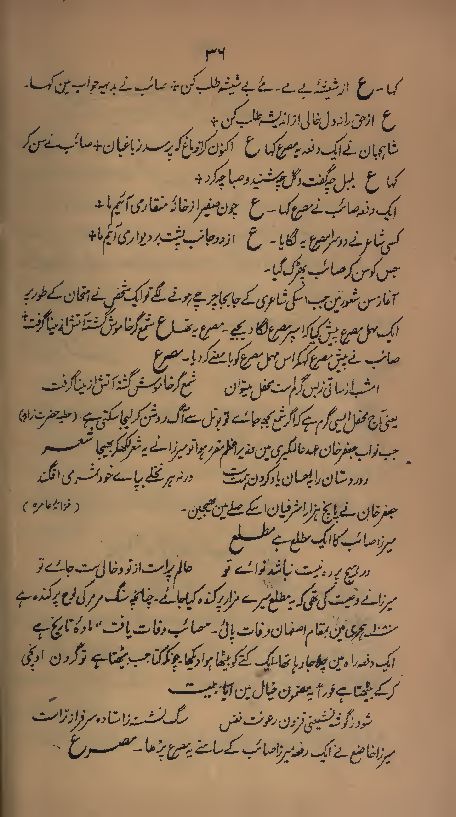 ۳۶
کہا۔ ع از شیشۂ بے مے۔ مے بے شیشہ طلب کن ؞ صائب نے بدیہہ جواب مین کہا۔
ع از حق را ز دل خالی از اندیشہ طلب کن ؞
شاہجہان نے ایک دفعہ یہ مصرع کہا ع اکنون کرا دماغ کہ پرسد ز باغبان ؞ صائب نے سن کر
کہا ع بلبل چہ گفت و گل چہ شنید و صبا چہ کرد ؞
ایک دفعہ صائب نے مصرع کہا۔ ع چون صفیر از خانۂ منقاری آئیم ما ؞
کسی شاعر نے دوسرا مصرع یہ لگایا۔ ع از دو جانب پشت بر دیواری آئیم ما ؞
جس کو سن کر صائب پھڑک گیا۔
آغاز سن شعور مین جب اسکی شاعری کے جا بجا چرچے ہونے لگے تو ایک شخص نے امتحان کے طور پر
ایک مہمل مصرع پیش کیا کہ اسپر مصرع لگا دیجیے۔ مصرع یہ تھا۔ ع شمع گر خاموش گشت آتش از مینا گرفت ؞
صائب نے پیش مصرع کہکر اس مہمل مصرع کو بامعنے کر دیا۔ مصرع
امشب از ساقی ز بس گرم ست محفل میتوان شمع گر خاموش گشتہ آتش از مینا گرفت
یعنی آج محفل ایسی گرم ہے کہ اگر شمع بجھ جائے تو بوتل سے آگ روشن کر لیجا سکتی ہے۔
جب نواب جعفر خان عہد عالمگیری مین وزیر اعظم مقرر ہوا تو میرزا نے یہ شعر لکھکر بھیجا شعر
دور دستان را باحسان یاد کردن ہمت ست ورنہ ہر نخلے بپاے خود ثمر می افگند
جعفر خان نے پانچ ہزار اشرفیان اسکے صلے مین بھیجین۔ (خزانۂ عامرہ)
میرزا صائب کا ایک مطلع ہے مطلع
در ہیچ پردہ نیست نباشد نواے تو عالم پر است از تو و خالی ست جاے تو
میرزا نے وصیت کی تھی کہ یہ مطلع میرے مزار پر کندہ کیا جائے۔ چنانچہ سنگ مرمر کی لوح پر کندہ ہے
ہجری مین بمقام اصفہان وفات پائی۔ "صائب وفات یافت" مادۂ تاریخ ہے
ایک دفعہ راہ مین چلا جا رہا تھا، ایک کتے کو بیٹھا ہوا دیکھا چونکہ کتا جب بیٹھتا ہے تو گردن اونچی
کر کے بیٹھتا ہے فوراً یہ مضمون خیال مین آیا بیت
شود ز گوشہ نشینی فزون رعونت نفس سگ نشستہ ز استادہ سرفراز تر است
میرزا نے ایک دفعہ میرزا صائب کے سامنے یہ مصرع پڑھا۔ مصرع